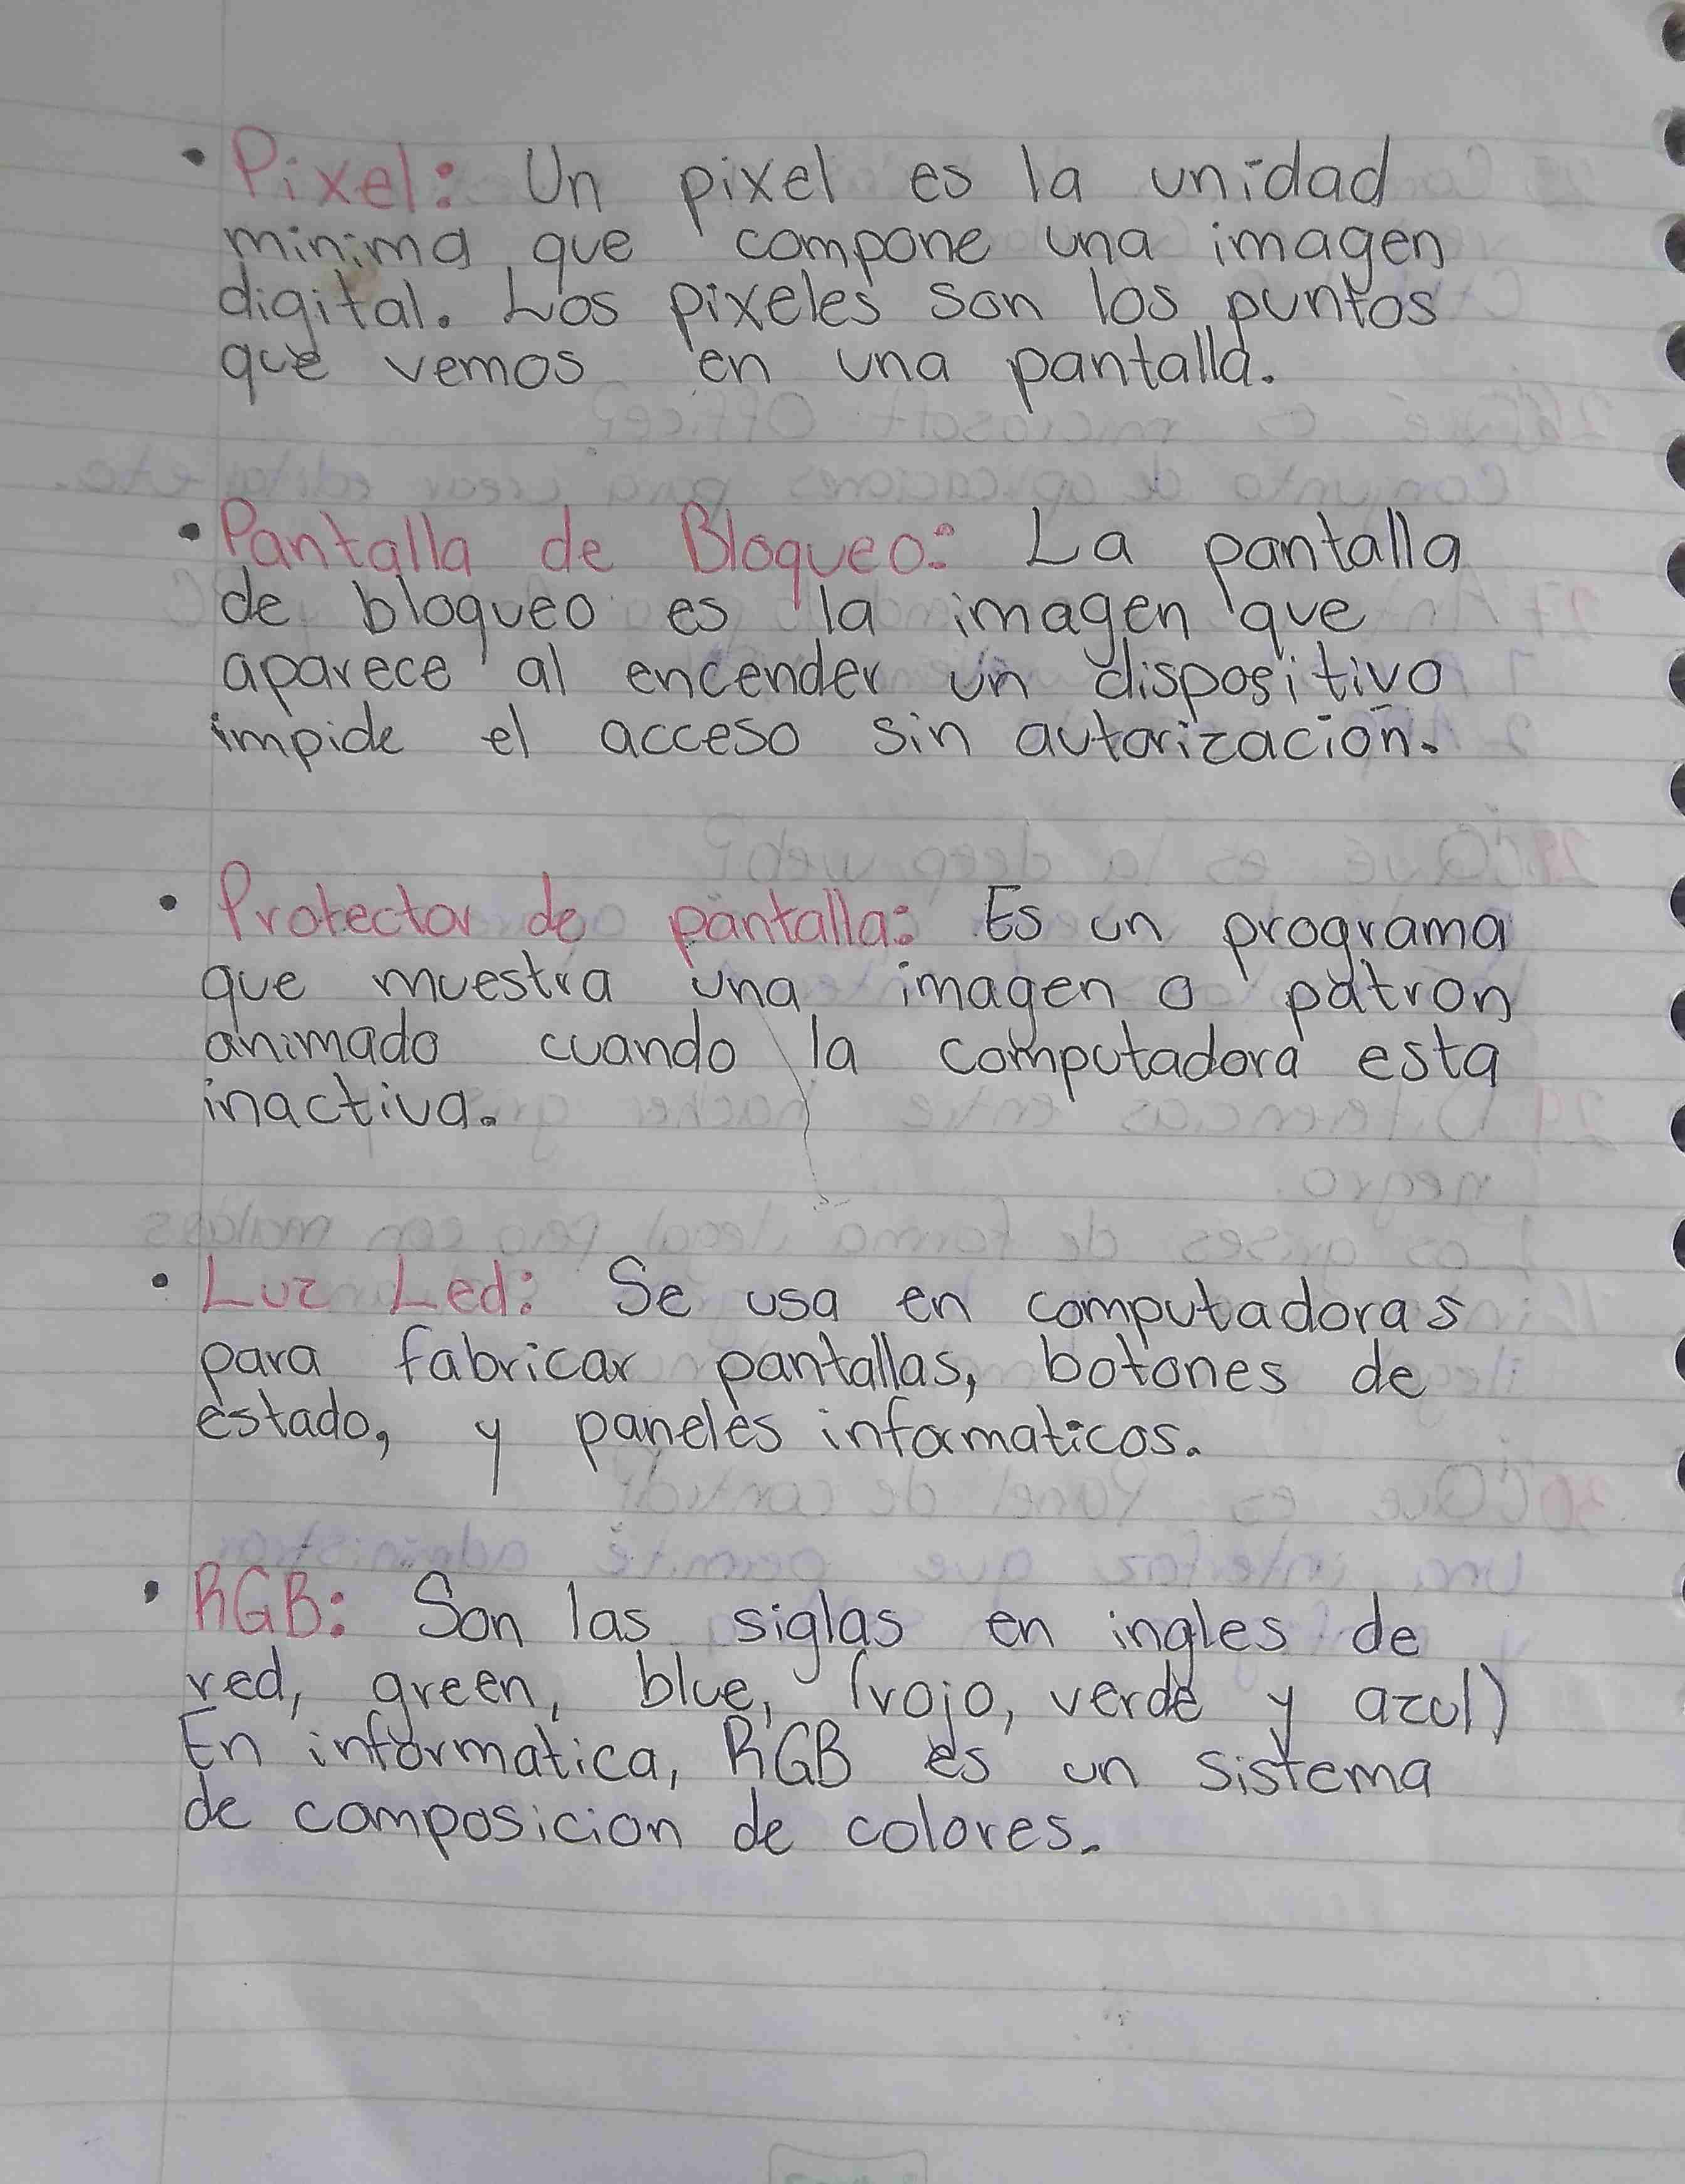 • Pixel: Un pixel es la unidad
minima que compone una imagen
digital. Los pixeles son los puntos
que vemos en una pantalla.
• Pantalla de Bloqueo: La pantalla
de bloqueo es la imagen que
aparece al encender un dispositivo
impide el acceso sin autorización.
• Protector de pantalla: Es un programa
que muestra una imagen o patron
animado cuando la computadora esta
inactiva.
• Luz Led: Se usa en computadoras
para fabricar pantallas, botones de
estado, y paneles informaticos.
• RGB: Son las siglas en ingles de
red, green, blue, (rojo, verde y azul)
En informatica, RGB es un sistema
de composicion de colores.